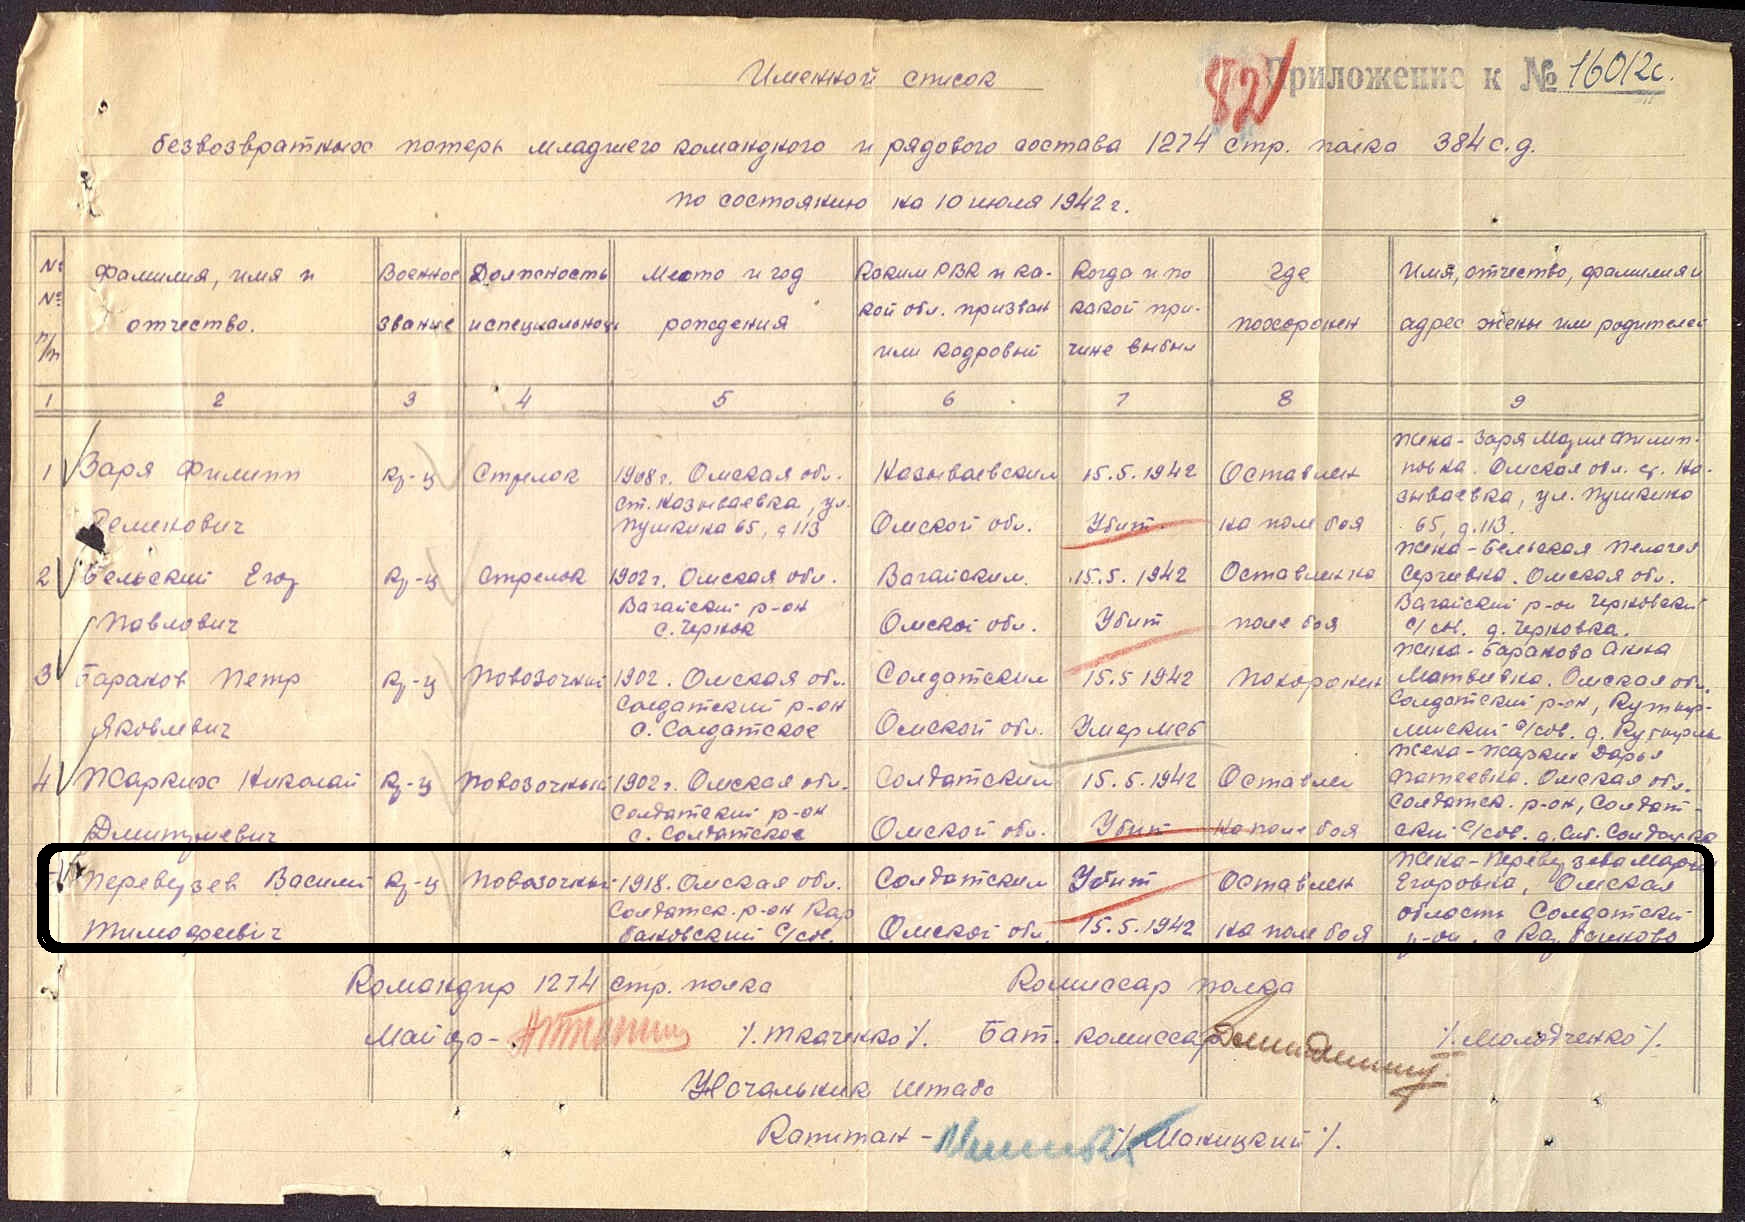 Именной список
82
Приложение к № 16012с.
безвозвратных потерь младшего командного и рядового состава 1274 стр. полка 384 с.д.
по состоянию на 10 июля 1942 г.
№ № п/п
Фамилия, имя и отчество.
Военное звание
Должность и специальность
Место и год рождения
Каким РВК и какой обл. призван или кадровый
Когда и по какой причине выбыл
Где похоронен
Имя, отчество, фамилия и адрес жены или родителей
1 2 3 4 5 6 7 8 9
1 Заря Филипп Семенович
кр-ц
Стрелок
1908 г. Омская обл.
ст. Называевка, ул.
Пушкина 65, д 113
Называевским
Омской обл.
15.5.1942
Убит
Оставлен
на поле боя
Жена - Заря Мария Филип-
повна. Омская обл. ст. На-
зываевка, ул. Пушкина
65, д. 113.
2 Бельский Егор
Павлович
кр-ц
Стрелок
1902 г. Омская обл.
Вагайский р-он
с. Чернок
Вагайским.
Омской обл.
15.5.1942
Убит
Оставлен на
поле боя
Жена - Бельская Пелагея
Сергеевна. Омская обл.
Вагайский р-он Черновский
с/сов. д. Черновка.
3 Баранов Петр
Яковлевич
кр-ц
Повозочный
1902. Омская обл.
Солдатский р-он
с. Солдатское
Солдатским
Омской обл.
15.5 1942
Умер
Похоронен
Жена - Баранова Анна
Матвеевна. Омская обл.
Солдатский р-он,
с/сов. д.
4 Жарких Николай
Дмитриевич
кр-ц
Повозочный
1902 г. Омская обл.
Солдатский р-он
с. Солдатское
Солдатским
Омской обл.
15.5.1942
Убит
Оставлен
на поле боя
Жена - Жарких Дарья
Омская обл.
Солдатск. р-он, Солдат-
ский с/сов. д.
Перевузев Василий
Тимофеевич
кр-ц
Повозочный
1918. Омская обл.
Солдатск. р-он Кар
баковский с/сов.
Солдатским
Омской обл.
Убит
15.5.1942
Оставлен
на поле боя
Жена - Перевузева Мария
Егоровна, Омская
область Солдатский
р-он.
Командир 1274 стр. полка
Комиссар полка
Майор - /Ткаченко/.
Бат. комиссар /Молодченко/.
Начальник штаба
Капитан - /Маницкий/.